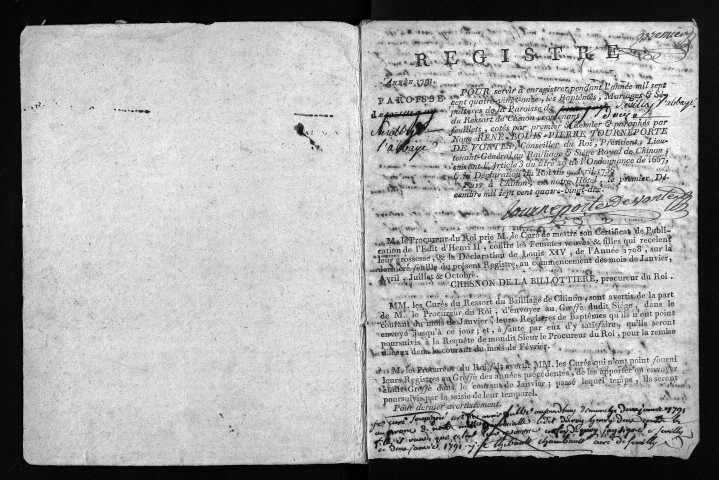 premier
REGISTRE
ANNÉE 1791.
PAROISSE
de
Seuilly
l'abbaye
POUR servir à enregistrer pendant l'année mil sept
cent quatre-vingt-onze, les Baptêmes, Mariages & Sé-
pultures de la Paroisse de Seuilly l'abbaye
du Ressort de Chinon, contenant Douze
feuillets, cotés par premier & dernier & paraphés par
Nous RENÉ-LOUIS-PIERRE TOURNEPORTE
DE VONTES, Conseiller du Roi, Président, Lieu-
tenant-Général au Bailliage & Siège Royal de Chinon;
suivant l'Article 3 du titre 20 de l'Ordonnance de 1667,
& la Déclaration du Roi du 9 Avril 1736.
FAIT à Chinon, en notre Hôtel, le premier Dé-
cembre mil sept cent quatre-vingt-dix.
Tourneporte De Vontes
M. le Procureur du Roi prie M. le Curé de mettre son Certificat de Publi-
cation de l'Edit d'Henri II, contre les Femmes veuves & filles qui recelent
leur grossesse, & la Déclaration de Louis XIV, de l'Année 1708, sur la
derniere feuille du présent Registre, au commencement des mois de Janvier,
Avril, Juillet & Octobre.
CHESNON DE LA BILLOTTIERE, procureur du Roi.
MM. les Curés du Ressort du Bailliage de Chinon, sont avertis de la part
de M. le Procureur du Roi, d'envoyer au Greffe dudit Siège, dans le
courant du mois de Janvier, leurs Registres de Baptêmes qu'ils n'ont point
envoyé jusqu'à ce jour; et, à faute par eux d'y satisfaire, qu'ils seront
poursuivis à la Requête de mondit Sieur le Procureur du Roi, pour la remise
d'iceux dans le courant du mois de Février.
M. le Procureur du Roi avertit MM. les Curés qui n'ont point fourni
leurs Registres au Greffe des années précédentes, de les apporter ou envoyer
audit Greffe dans le courant de Janvier; passé lequel temps, ils seront
poursuivis par la saisie de leur temporel.
Pour dernier avertissement.
je curé soussigné certifie avoir publié aujourdhuy dimanche deux janvier 1791
au prone de notre messe l'edit du roy henry deux contre les
filles et veuves qui celent leur grossesse a seuilly
ce deux janvier 1791. thibault chambault curé de seuilly